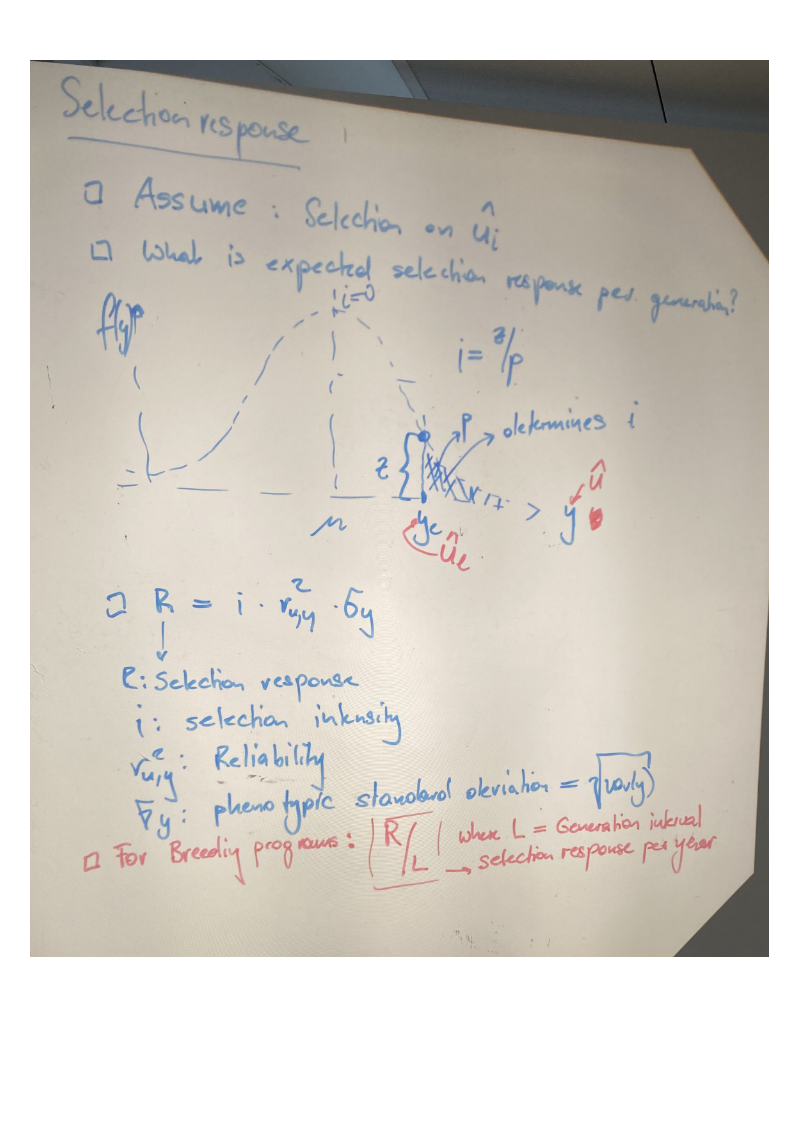 Selection response
□ Assume : Selection on û_i
□ What is expected selection response per generation?
f(y)
i=0
i = z/p
p
determines i
z
û
μ
y_c
y
û_c
□ R = i · r²_u,y · σ_y
R: Selection response
i: selection intensity
r²_u,y : Reliability
σ_y : phenotypic standard deviation = √var(y)
□ For Breeding programs : R/L where L = Generation interval
→ selection response per year